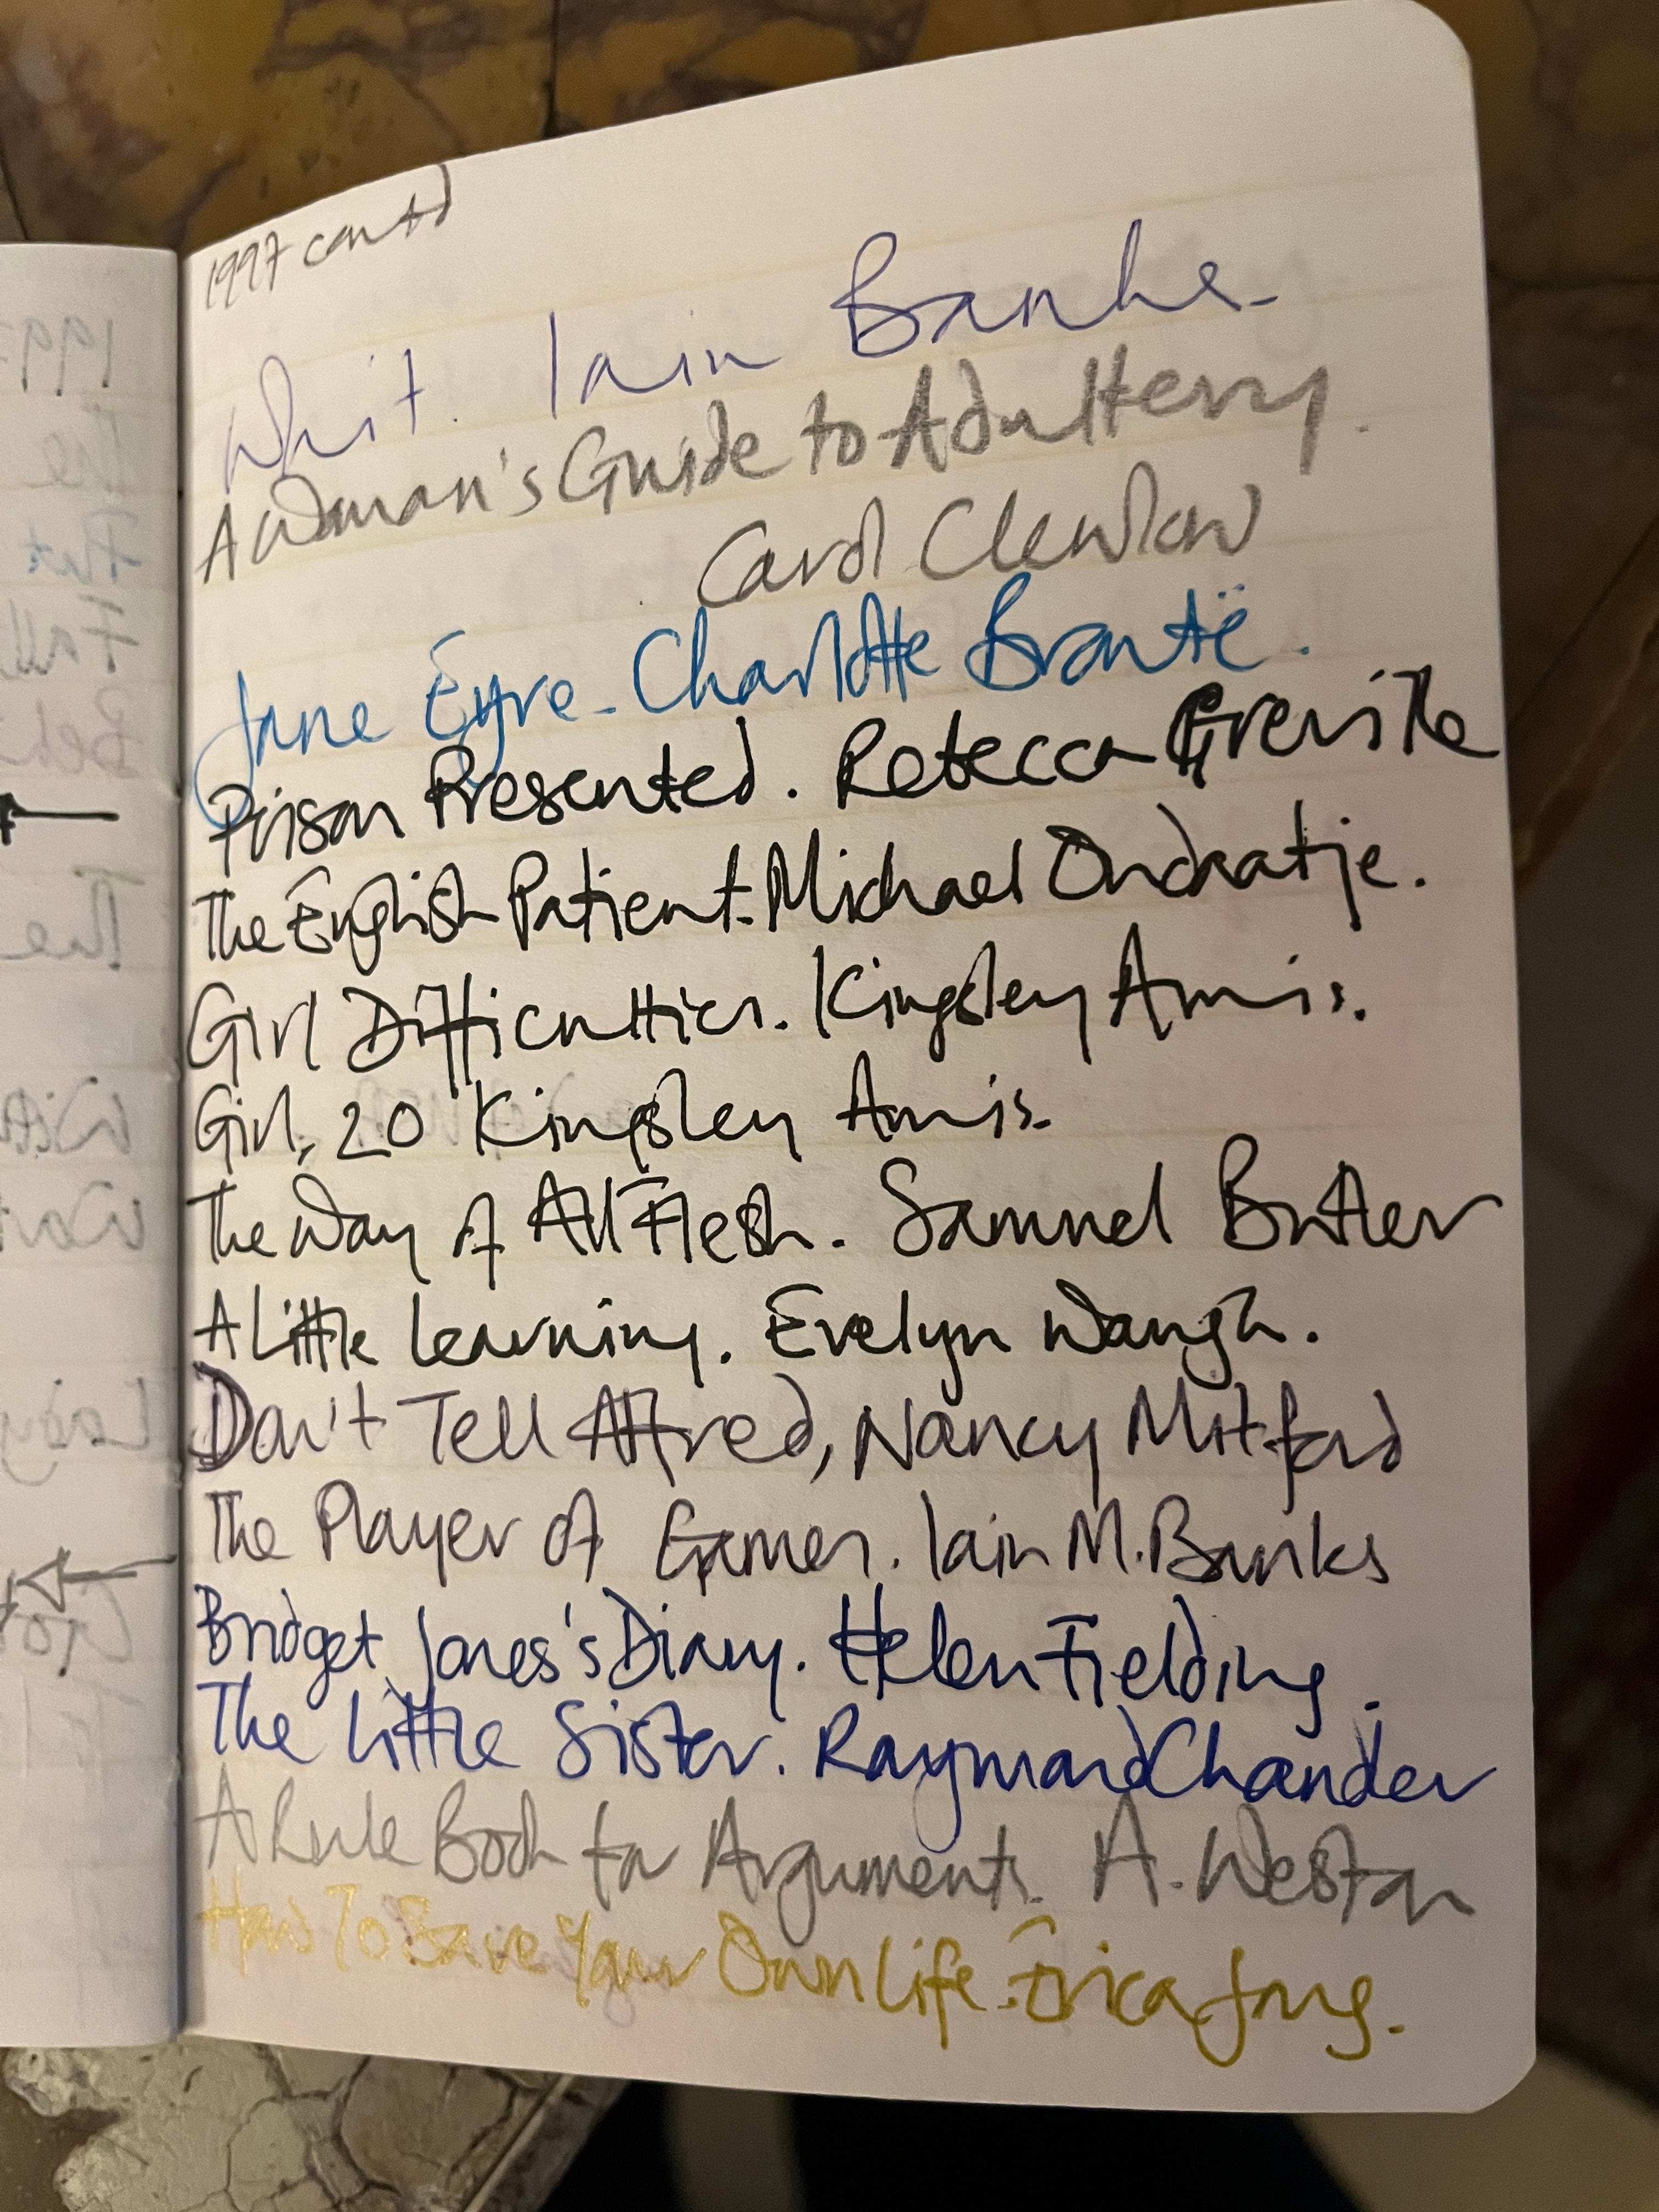 1997 contd
Whit. Iain Banks
A Woman's Guide to Adultery.
Carol Clewlow
Jane Eyre - Charlotte Brontë.
Prison Presented. Rebecca Greville
The English Patient - Michael Ondaatje.
Girl Difficulties. Kingsley Amis.
Girl, 20 Kingsley Amis.
The Way of All Flesh. Samuel Butler
A Little Learning. Evelyn Waugh.
Don't Tell Alfred, Nancy Mitford
The Player of Games. Iain M. Banks
Bridget Jones's Diary. Helen Fielding.
The Little Sister. Raymond Chandler
A Rule Book for Arguments. A. Weston
How To Save Your Own Life. Erica Jong.